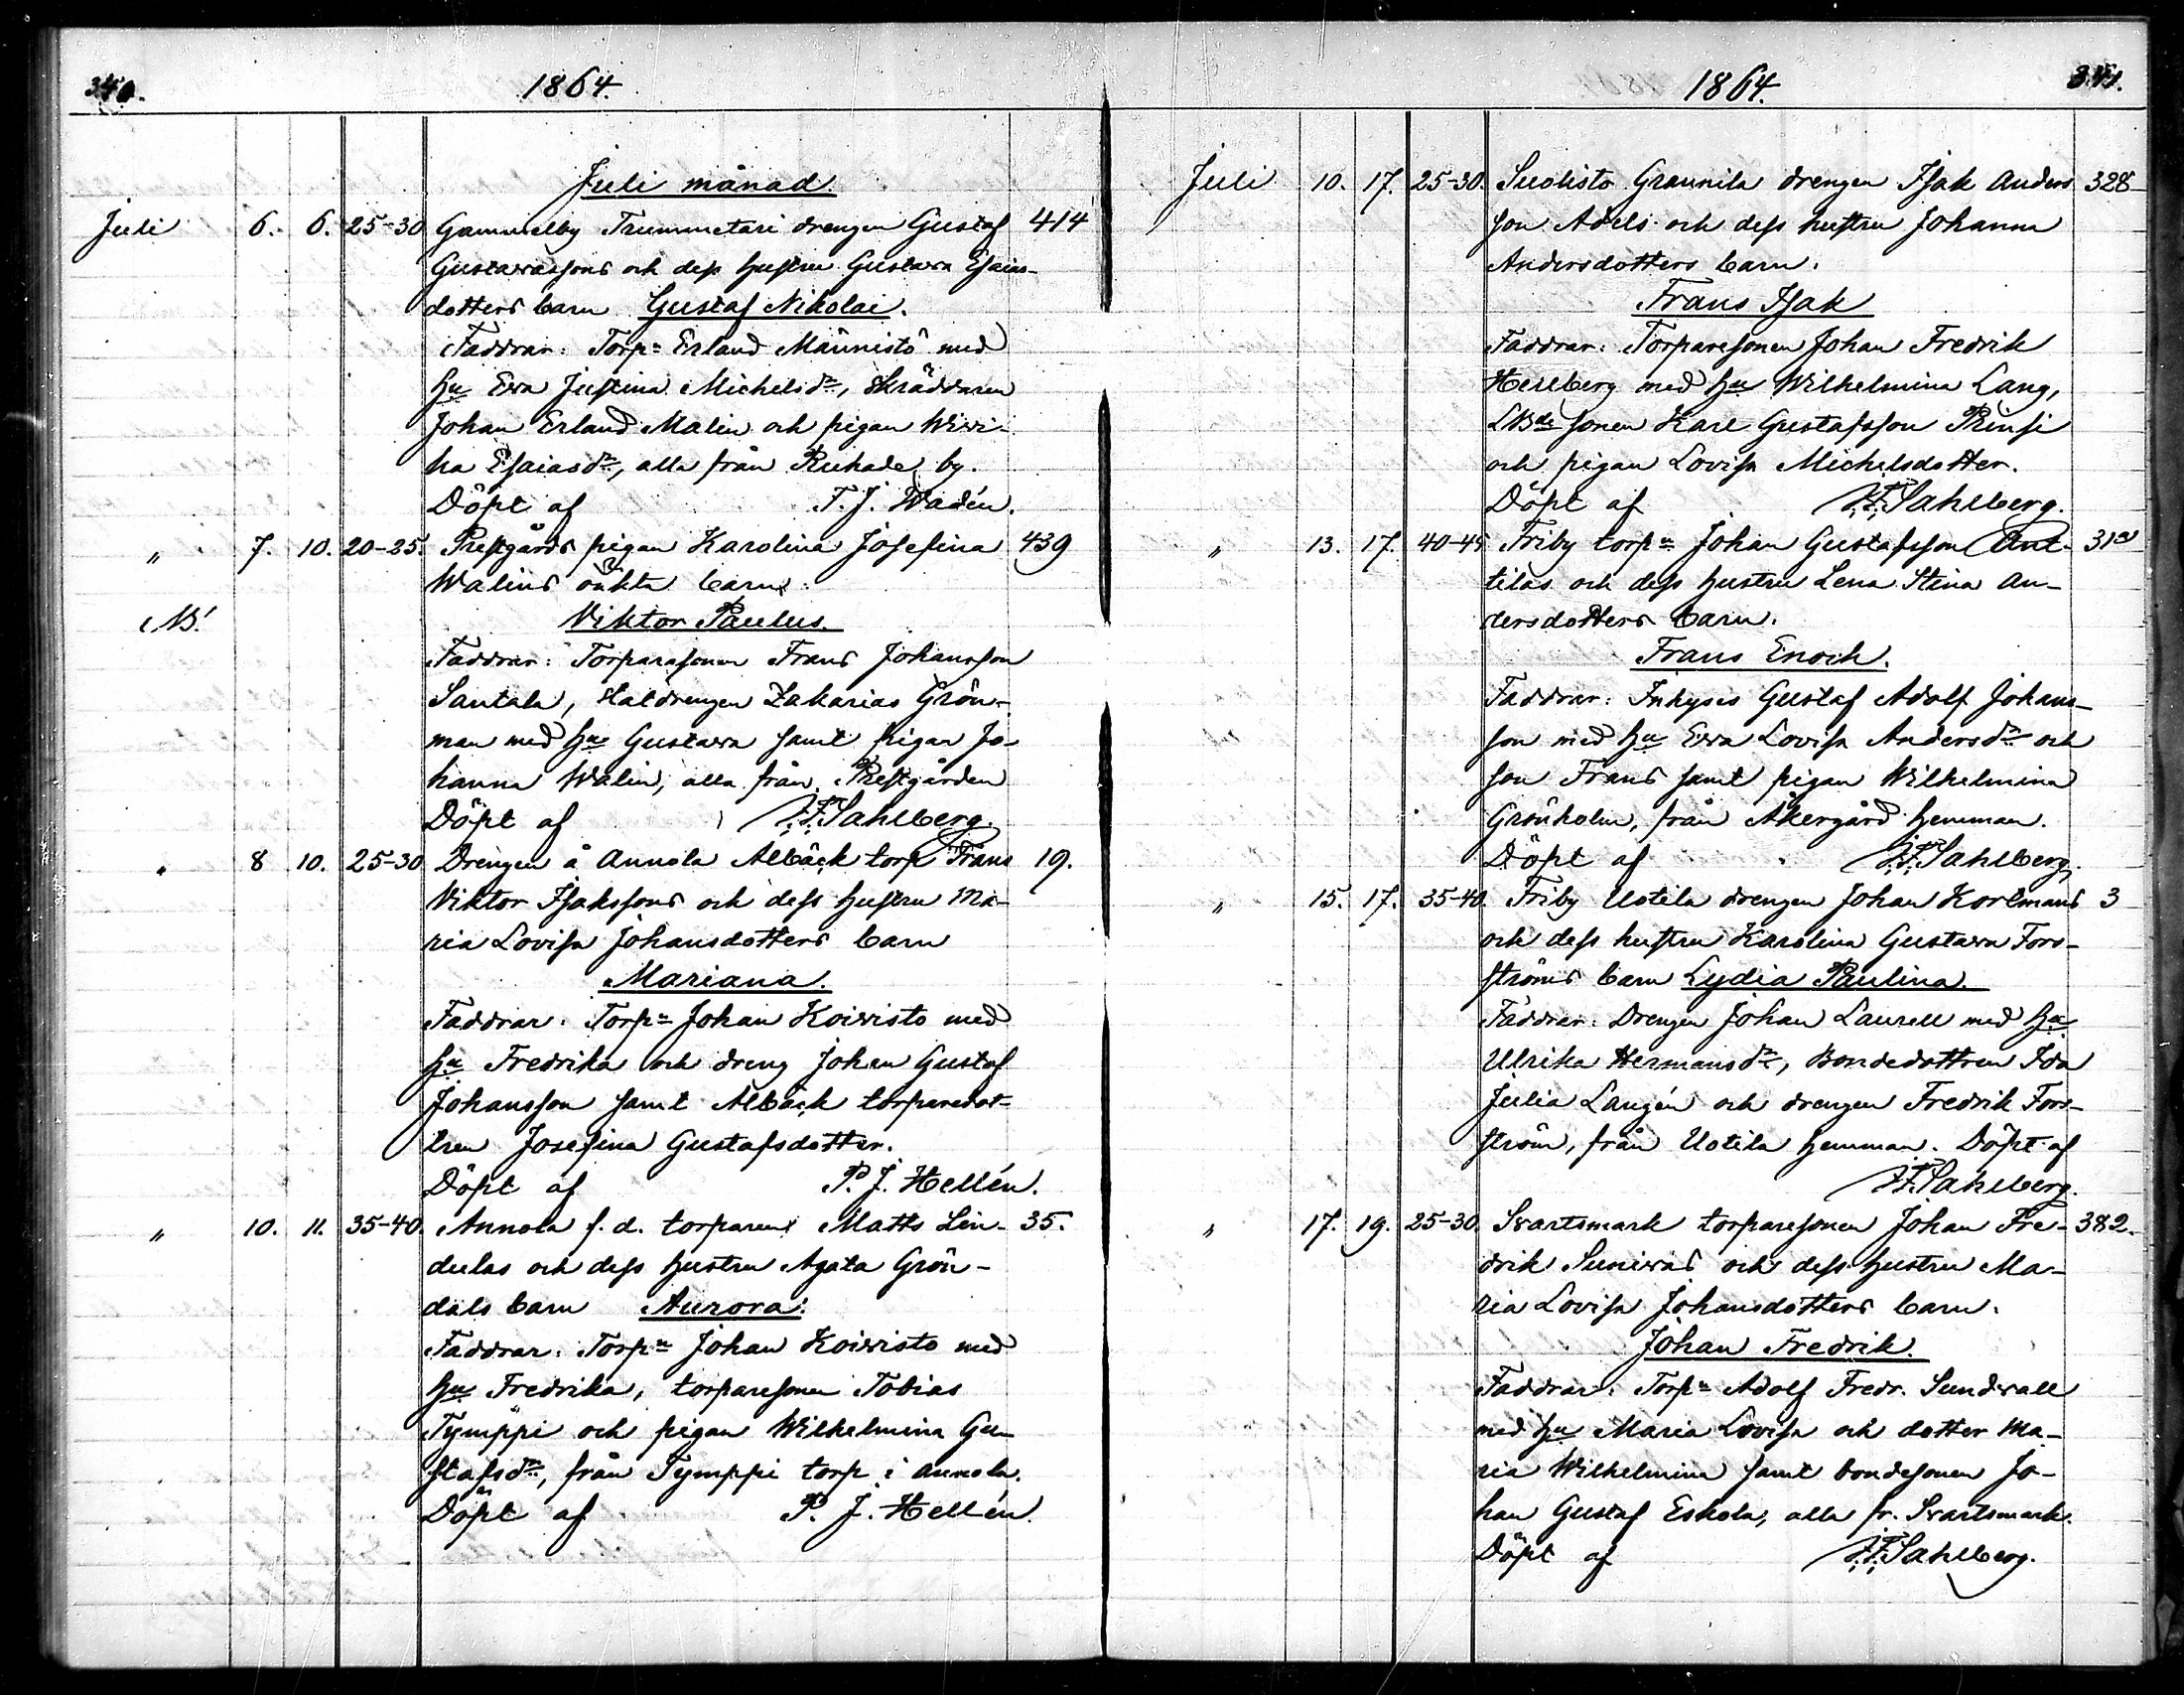 340.
1864.
Juli månad.
Juli 6. 6. 25-30 Gammelby Trummetari drengen Gustaf 414
Gustavassons och dess hustru Gustava Esaias-
dotters barn Gustaf Nikolai.
Faddrar: Torp:n Erland Männistö med
hu Eva Justina Michelsd:r, skräddaren
Johan Erland Malin och pigan Wivi-
ka Esaiasd:r, alla från Ruhade by.
Döpt af T. J. Wadén.
" 7. 10. 20-25. Prestgårds pigan Karolina Josefina 439
Walins oäkta barn:
NB! Viktor Paulus.
Faddrar: Torparesonen Frans Johansson
Santala, Statdrengen Zakarias Grön-
man med hu Gustava samt pigan Jo-
hanna Walin, alla från Prestgården
Döpt af F. Sahlberg.
" 8 10. 25-30 Drengen å Annola Albäck torp Frans 19.
Viktor Isakssons och dess hustru Ma-
ria Lovisa Johansdotters barn
Mariana.
Faddrar: Torp:n Johan Koivisto med
hu Fredrika och dreng Johan Gustaf
Johansson samt Albäck torparedot-
tren Josefina Gustafsdotter.
Döpt af P. J. Hellén.
" 10. 11. 35-40. Annola f. d. torparen Matts Lin- 35.
dulas och dess hustru Agata Grön-
dals barn Aurora.
Faddrar: Torp:n Johan Koivisto med
hu Fredrika, torparesonen Tobias
Tymppi och pigan Wilhelmina Gu-
stafsd:r, från Tymppi torp i Annola.
Döpt af P. J. Hellén.
1864.
341.
Juli 10. 17. 25-30. Suolisto Grannila drengen Isak Anders 328
son Adels och dess hustru Johanna
Andersdotters barn.
Frans Isak
Faddrar: Torparesonen Johan Fredrik
Heelberg med hu Wilhelmina Lang,
sonen Karl Gustafsson Prinsi
och pigan Lovisa Michelsdotter.
Döpt af F. Sahlberg.
" 13. 17. 40-45 Friby torp:n Johan Gustafsson Ant-
tilas och dess hustru Lena Stina An-
dersdotters barn.
Frans Enoch.
Faddrar: Inhyses Gustaf Adolf Johans-
son med hu Eva Lovisa Andersd:r och
son Frans samt pigan Wilhelmina
Grönholm, från Åkergård hemman.
Döpt af F. Sahlberg.
" 15. 17. 35-40. Friby Uotila drengen Johan Korlmans 3
och dess hustru Karolina Gustava Fors-
ströms barn Lydia Paulina.
Faddrar: Drengen Johan Laurell med hu
Ulrika Hermansd:r, Bondedottren Ida
Julia Langén och drengen Fredrik Fors-
ström, från Uotila hemman. Döpt af
F. Sahlberg.
" 17. 19. 25-30. Svartsmark torparesonen Johan Fre- 382.
drik Sunivas och dess hustru Ma-
ria Lovisa Johansdotters barn.
Johan Fredrik.
Faddrar: Torp:n Adolf Fredr. Sundvall
med hu Maria Lovisa och dotter Ma-
ria Wilhelmina samt bondesonen Jo-
han Gustaf Eskola, alla fr. Svartsmark.
Döpt af F. Sahlberg.